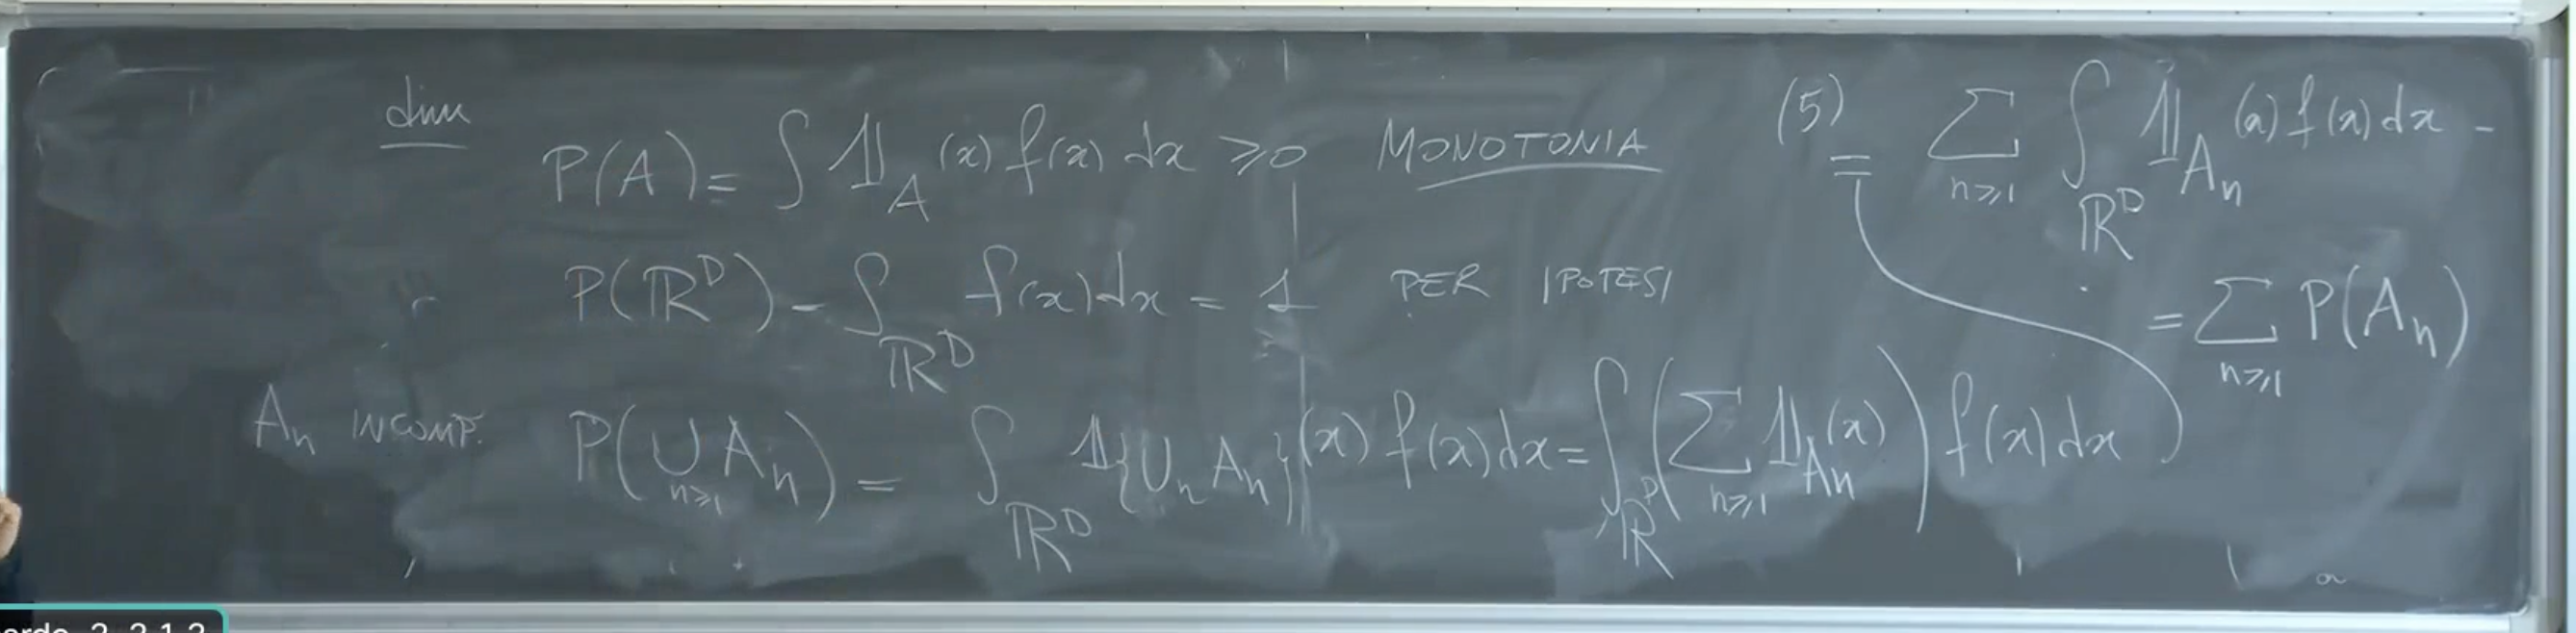 dim
P(A) = ∫ 𝟙_A (x) f(x) dx ⩾ 0 MONOTONIA
P(ℝ^D) = ∫_{ℝ^D} f(x) dx = 1 PER IPOTESI
A_n INCOMP. P(∪_{n⩾1} A_n) = ∫_{ℝ^D} 𝟙{∪_n A_n}(x) f(x) dx = ∫_{ℝ^D} (∑_{n⩾1} 𝟙_{A_n}(x)) f(x) dx
(5) = ∑_{n⩾1} ∫_{ℝ^D} 𝟙_{A_n}(x) f(x) dx =
= ∑_{n⩾1} P(A_n)